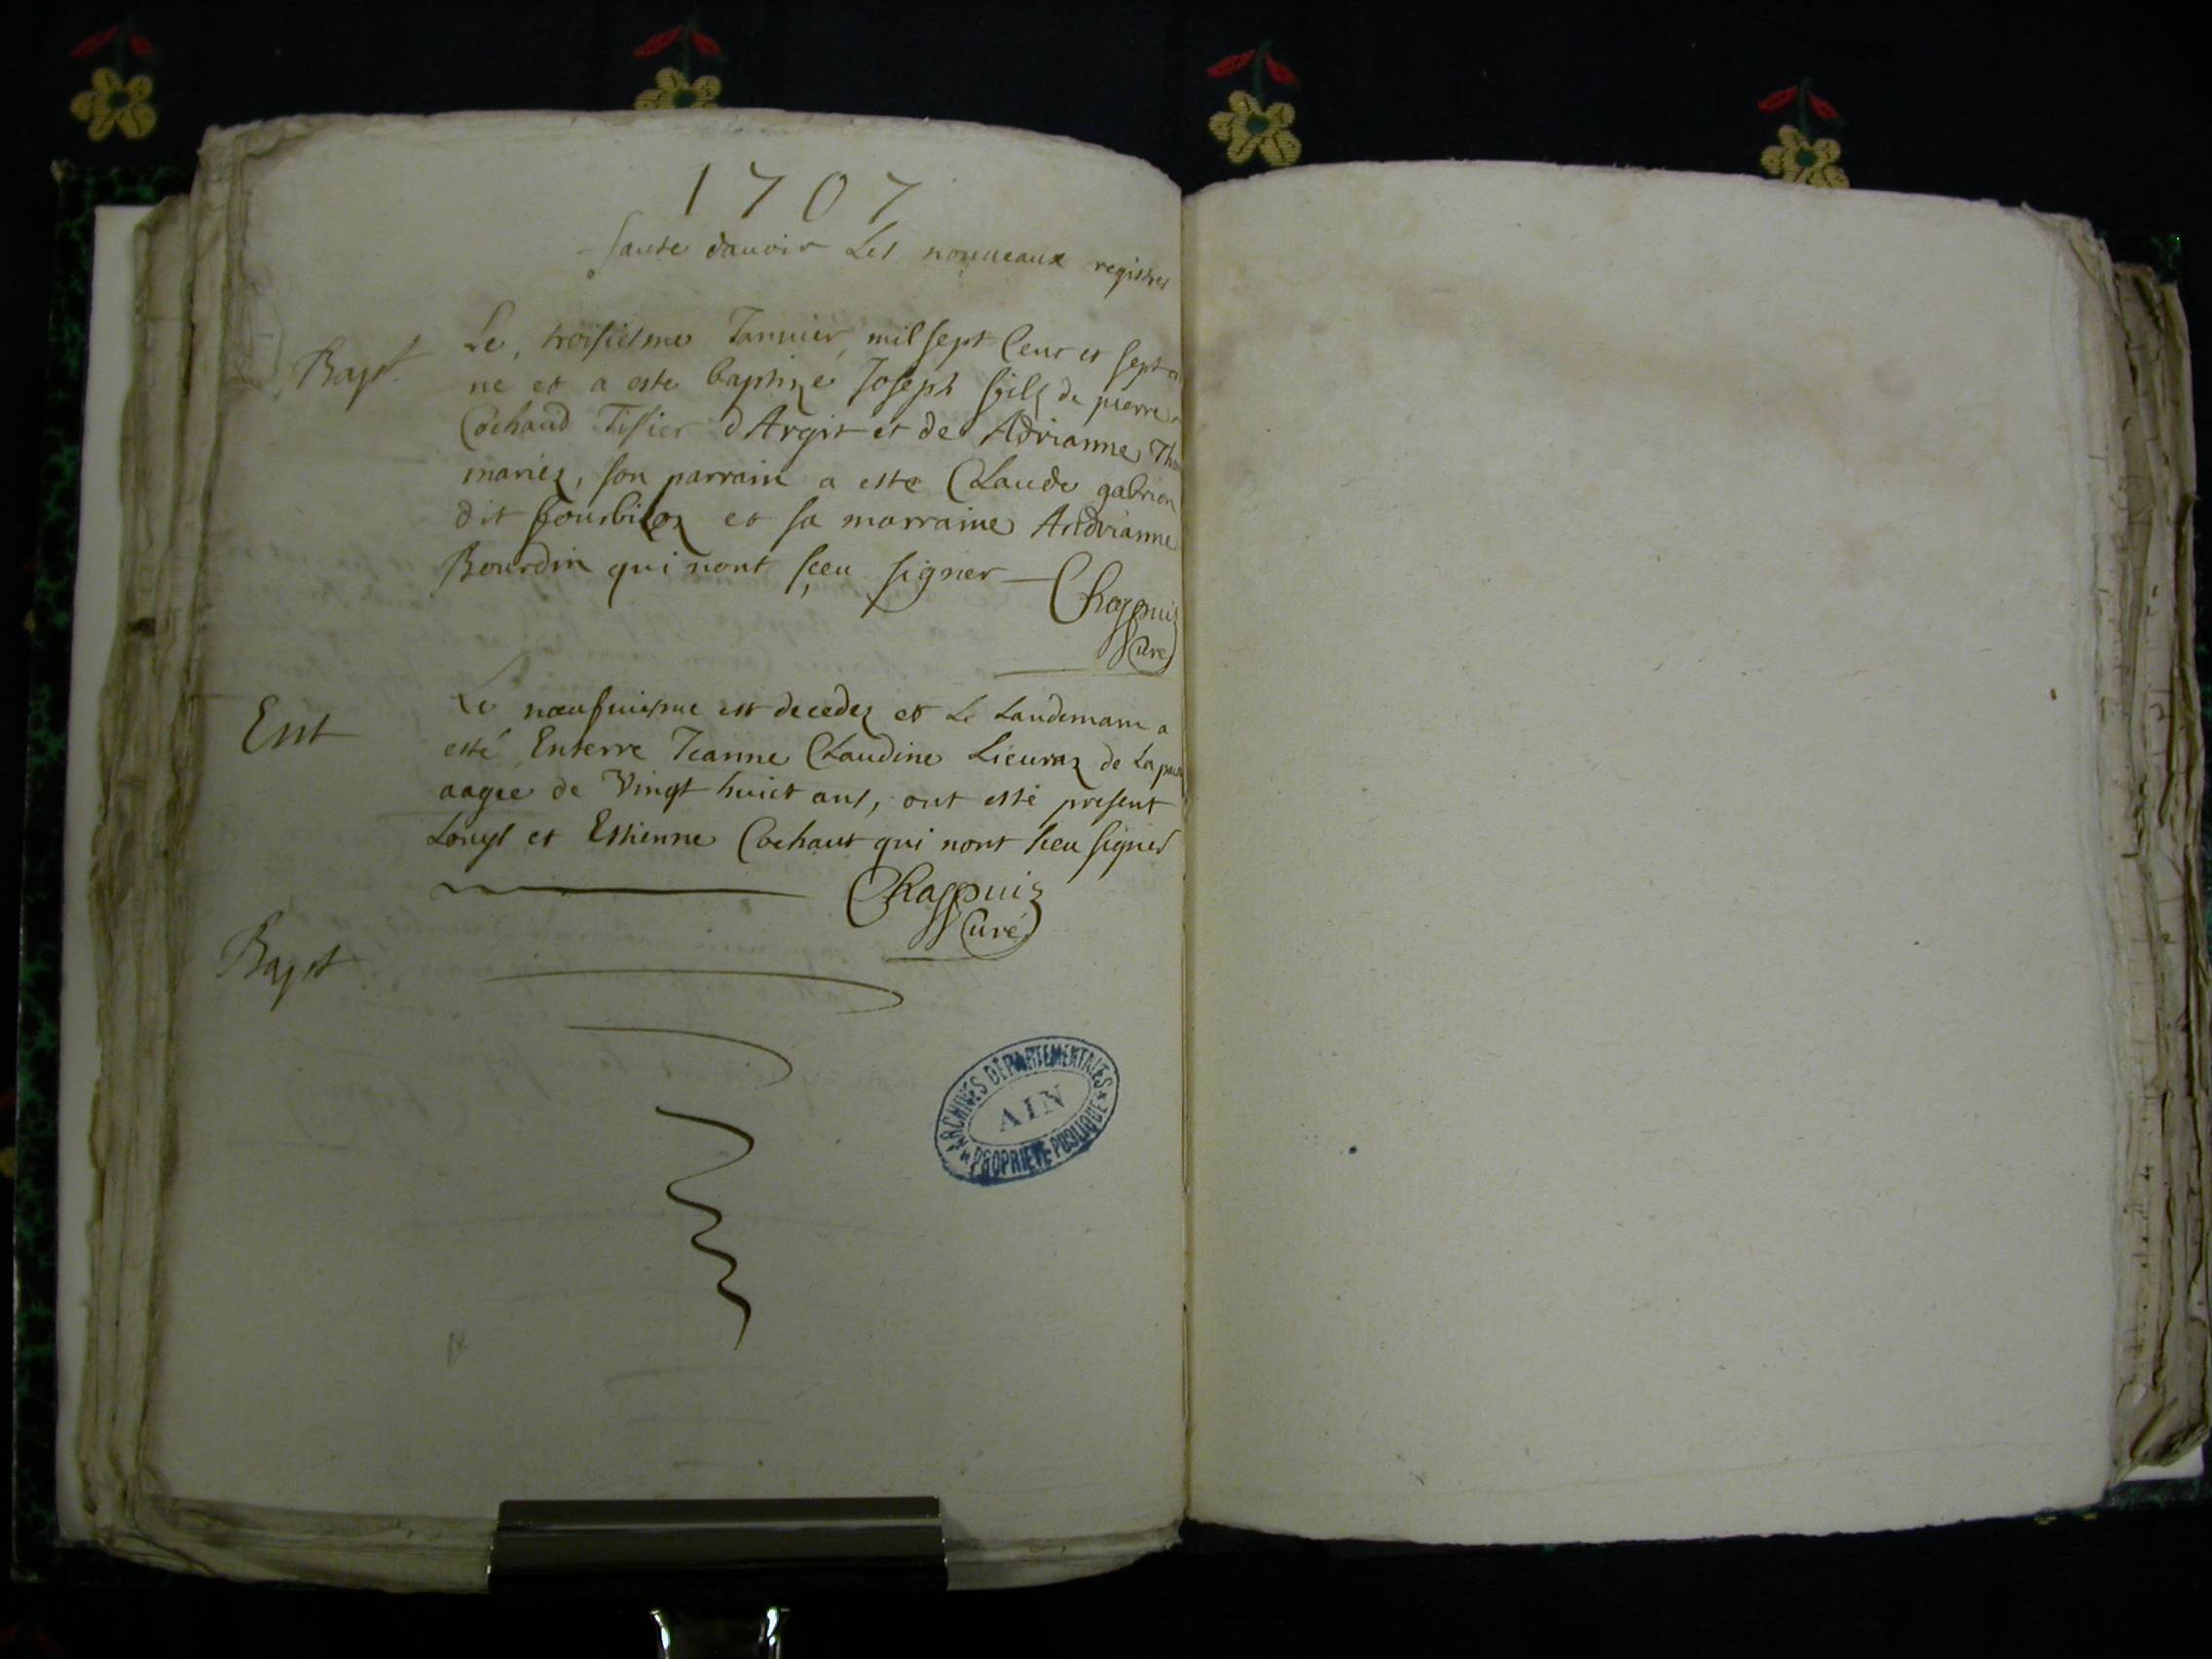 1707
faute dauoir Les nouueaux registres
Bapt. Le troisiesme Januier mil sept Cent et sept
ne et a este baptizé Joseph fils de pierre
Cochaud Tisier d'Argit et de Adrianne
mariez, son parrain a este Claude gabrion
dit et sa marraine Andrianne
Bourdin qui nont sceu signer
Chappuiz
Curé
Ent Le noeufuiesme est decedez et Le Landemain a
esté Enterre Jeanne Claudine Lieuraz de
aagée de Vingt huict ans, ont esté present
Louys et Estienne Cochaut qui nont sceu signer
Chappuiz
Curé
Bapt
ARCHIVES DÉPARTEMENTALES
AIN
PROPRIÉTÉ PUBLIQUE